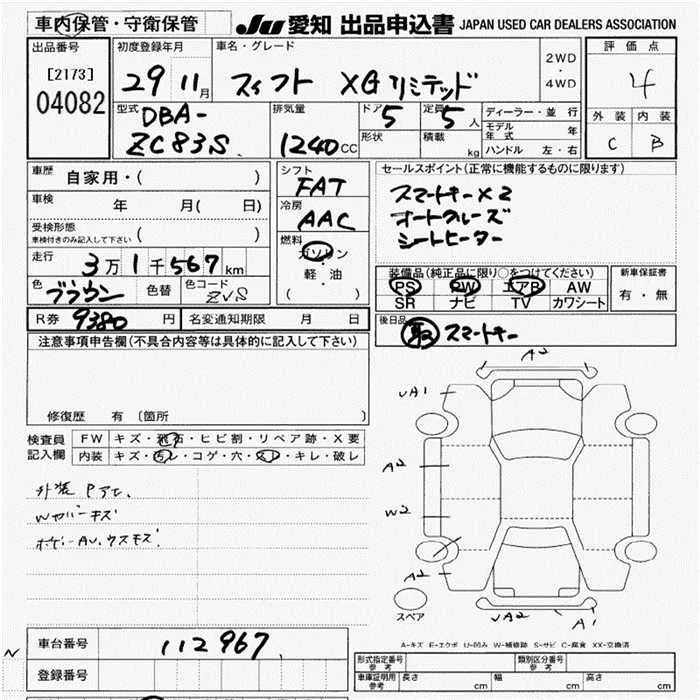 車内保管・守衛保管
JU 愛知 出品申込書 JAPAN USED CAR DEALERS ASSOCIATION
出品番号
[2173]
04082
初度登録年月
29 11月
車名・グレード
スイフト XGリミテッド
2WD
・
4WD
評価点
4
外装 内装
C B
型式 DBA-
ZC83S
排気量
1240cc
ドア 5
形状
定員 5人
積載 kg
ディーラー・並行
モデル年式 年
ハンドル 左・右
車歴 自家用・( )
車検 年 月( 日)
受検形態
車検付きのみ記入して下さい ( )
走行 3万1千567km
色 ブラウン
色替
色コード
ZVS
シフト
FAT
冷房
AAC
燃料
ガソリン
・
軽・油
( )
セールスポイント(正常に機能するものに限ります)
スマートキー×2
オートクルーズ
シートヒーター
装備品(純正品に限り○をつけてください)
PS PW エアB AW
SR ナビ TV カワシート
新車保証書
有・無
R券 9380 円
名変通知期限 月 日
後日品
取 スマートキー
注意事項申告欄(不具合内容等は具体的に記入して下さい)
修復歴 有 〔箇所
検査員
記入欄
FW キズ・飛石・ヒビ割・リペア跡・X要
内装 キズ・汚レ・コゲ・穴・スレ・キレ・破レ
外装 Pアト.
Wカバーキズ
ボデーAU.ウスキズ.
A2
UA1
A2
W2
A2
UA2
A1
スペア
A-キズ E-エクボ U-凹み W-補修跡 S-サビ C-腐食 XX-交換済
車台番号 112967
登録番号
N
形式指定番号
参考
類別区分番号
参考
車庫証明用
参考
長さ cm 幅 cm 高さ cm